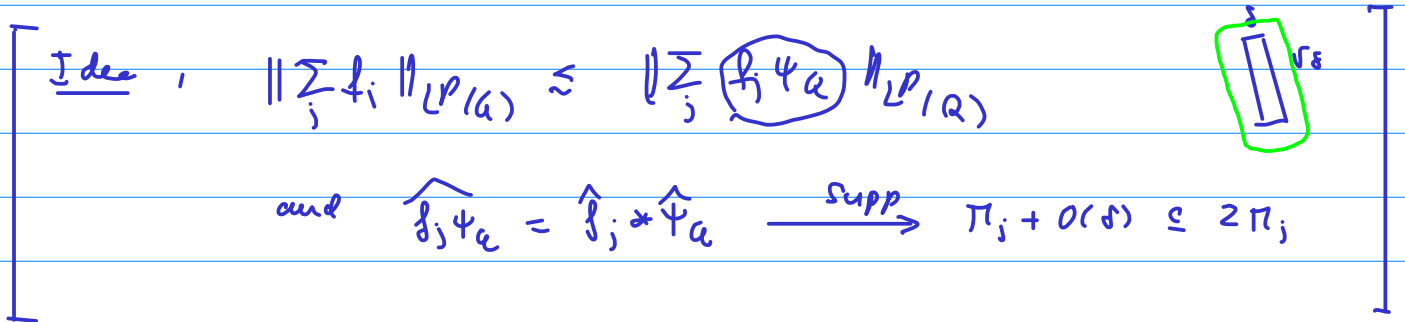 Idea, ‖ Σ_j f_j ‖_{L^p(Q)} ≲ ‖ Σ_j f_j ψ_Q ‖_{L^p(Q)}
δ
√δ
and \widehat{f_j ψ_Q} = \hat{f}_j * \hat{ψ}_Q supp → π_j + O(δ) ⊆ 2π_j